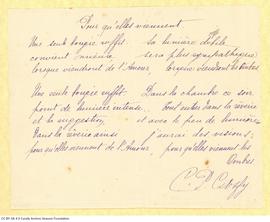 Pour qu'elles viennent
Une seule bougie suffit. Sa lumière débile
convient mieux, sera plus sympathique
lorsque viendront de l'Amour, lorsque viendront les Ombres
Une seule bougie suffit. Dans la chambre ce soir
point de lumière intense. Tout entier dans la rêverie
et la suggestion, et avec le peu de lumière
Dans la rêverie ainsi j'aurai des visions
pour qu'elles viennent de l'Amour pour qu'elles viennent les
Ombres.
C. P. Cavafy